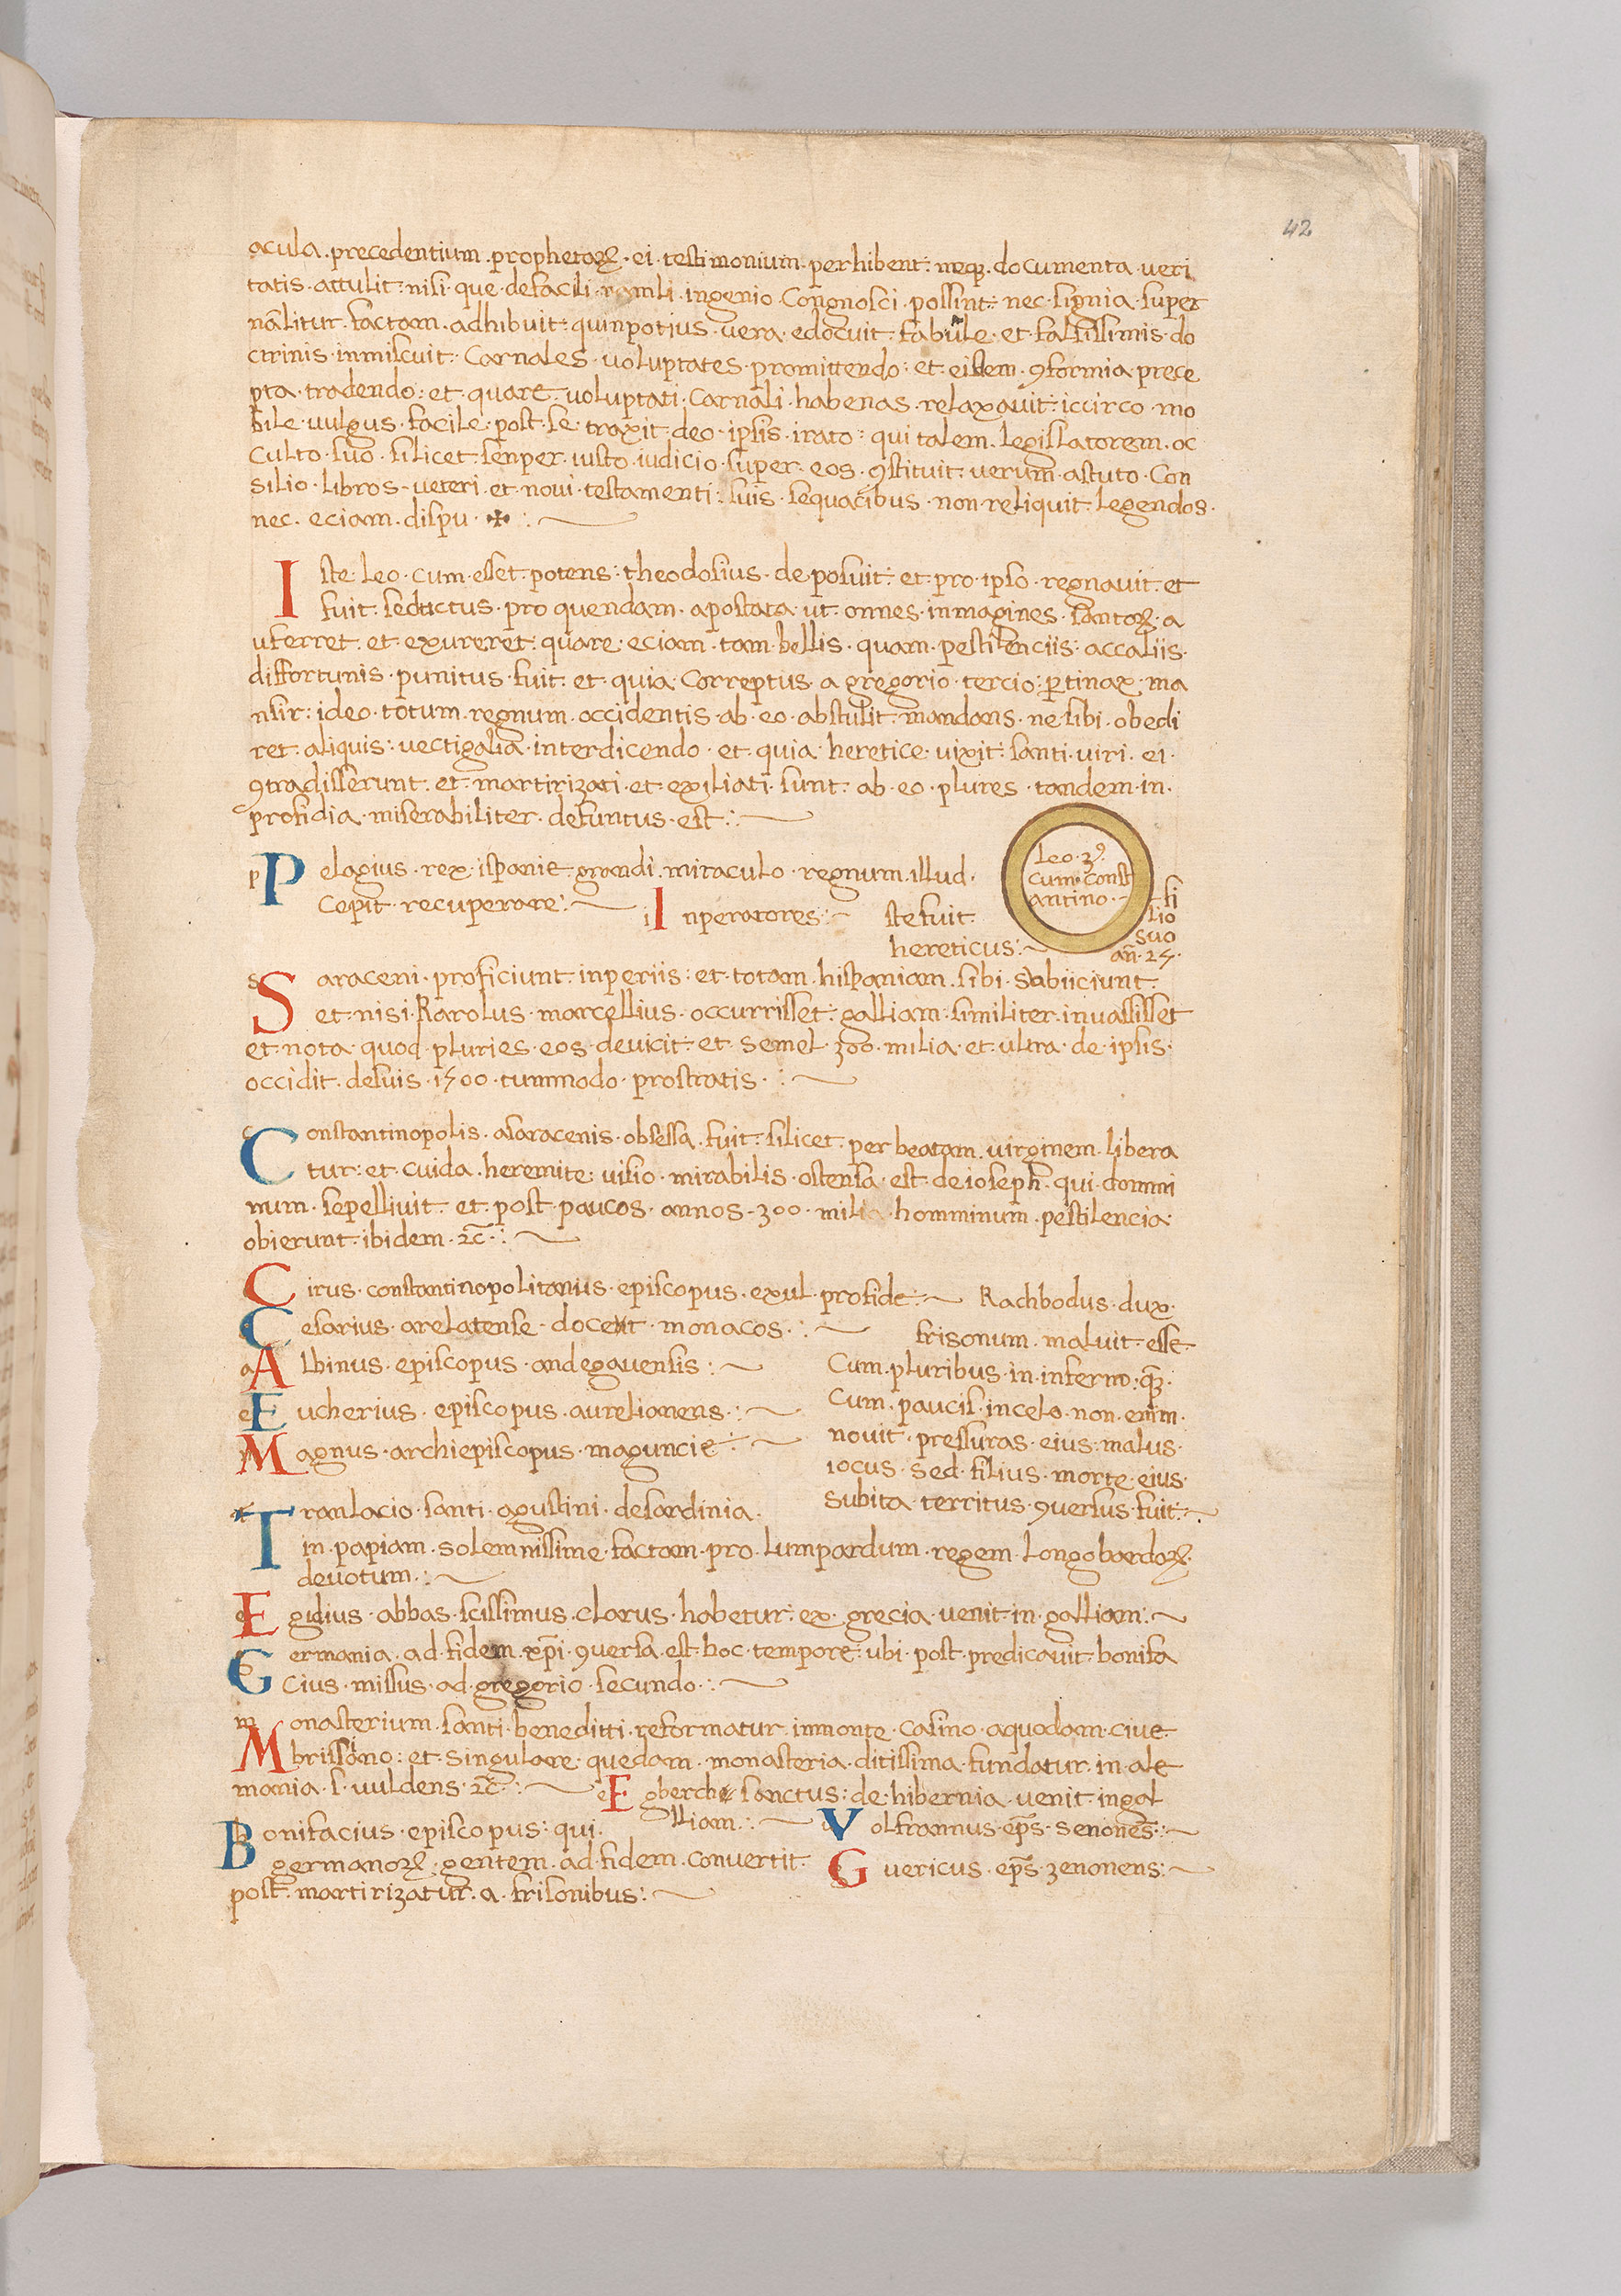 42
acula · precedentium · prophetoꝝ · ei · testimonium · perhibent : neqꝫ · documenta · veri
tatis · attulit : nisi · que · de facili · ingenio · Congnosci · possint : nec · signia · super
nālitur · factam · adhibuit : quinpotius · vera · edocuit · fabule · et · falsissimis · do
ctrinis · inmiscuit : Carnales · voluptates · promittendo : et · eisdem · ꝯformia · prece
pta · tradendo : et · quare · voluptati · Carnali · habenas · relaxavit : iccirco · mo
bile · vulgus · facile · post · se · traxit · deo · ipsis · irato : qui talem · legislatorem · oc
Culto · suo · silicet · senper · iusto · iudicio · super · eos · ꝯstituit · verum · astuto · Con
silio · libros · veteri · et · novi · testamenti : suis · sequacibus · non · reliquit · legendos ·
nec · eciam · dispu · ✠ :
I ste · leo · cum · esset · potens : theodosius · de posuit : et · pro · ipso · regnavit · et
fuit · seductus · pro quendam · apostata · ut · onnes · inmagines · santoꝝ · a
uferret · et · exureret : quare · eciam · tam · bellis · quam · pestilenciis : accaliis ·
diffortunis · punitus · fuit · et · quia · Correptus · a gregorio · tercio : ꝑtinax · ma
nsir : ideo · totum · regnum · occidentis · ab · eo · abstulit · mandans · ne sibi · obedi
ret · aliquis : vectigalia · interdicendo · et · quia · heretice · vixit : santi · viri · ei ·
ꝯtradisserunt · et · martirizati · et · exiliati · sunt · ab · eo · plures · tandem · in ·
profidia · miserabiliter · defuntus · est :
p P elagius · rex · ispanie · grandi · miraculo · regnum · illud ·
Cepit · recuperare :
i I nperatores : ste fuit
hereticus :
Leo · 3ꝰ
cum · const
antino ·
fi
lio
suo
añ · 25 ·
s S araceni · proficiunt · inperiis : et · totam · hispaniam · sibi · subiiciunt ·
et · nisi · Karolus · marcellius · occurrisset : galliam · similiter · invassisset
et · nota · quod · pluries · eos · devicit · et · semel · 300 · milia · et · ultra · de · ipsis ·
occidit · de suis · 1500 · tummodo · prostratis · :
c C onstantinopolis · asaracenis · obsessa · fuit : silicet · per beatam · virginem · libera
tur : et · cuida · heremite · visio · mirabilis · ostensa · est · de ioseph · qui · dommi
num · sepellivit · et · post · paucos · annos · 300 · milia · homminum · pestilencia ·
obierunt · ibidem · ⁊c̄ · :
C irus · constantinopolitanus · episcopus · exul · profide :
C esarius · arelatense · docent · monacos · :
a A lbinus · episcopus · andegavensis :
e E ucherius · episcopus · aurelianens · :
M agnus · archiepiscopus · maguncie · :
Rachbodus · dux ·
frisonum · maluit · esse ·
Cum · pluribus · in · inferno : qꝫ̄ ·
Cum · paucis · in celo · non · enim ·
novit · pressuras · eius : malus ·
iocus · sed · filius · morte · eius ·
subita · territus · ꝯversus · fuit :
t T ranlacio · santi · agustini · desardinia ·
in · papiam · solemnissime · factam · pro · lumpardum · regem · longobardoꝝ ·
devotum · :
e E gidius · abbas · scissimus · clarus · habetur : ex · grecia · venit · in · galliam :
G ermania · ad · fidem · xp̄i · ꝯversa · est · hoc · tempore : ubi · post · predicavit · bonifa
cius · missus · ad · gregorio · secundo · :
m M onasterium · santi · beneditti · reformatur · inmonte · casino · aquodam · cive
brissiono : et · singulare · quedam · monasteria · ditissima · fundatur · in · ale
mania · s · vuldens · ⁊c̄ · :
e E gberch · sanctus : de · hibernia · venit · ingal
lliam · :
B onifacius · episcopus : qui ·
germanoꝝ : gentem · ad · fidem · convertit ·
post · martirizatur · a · frisonibus :
V olfrannus · ep̄s · senones :
G vericus · ep̄s · zenonens :